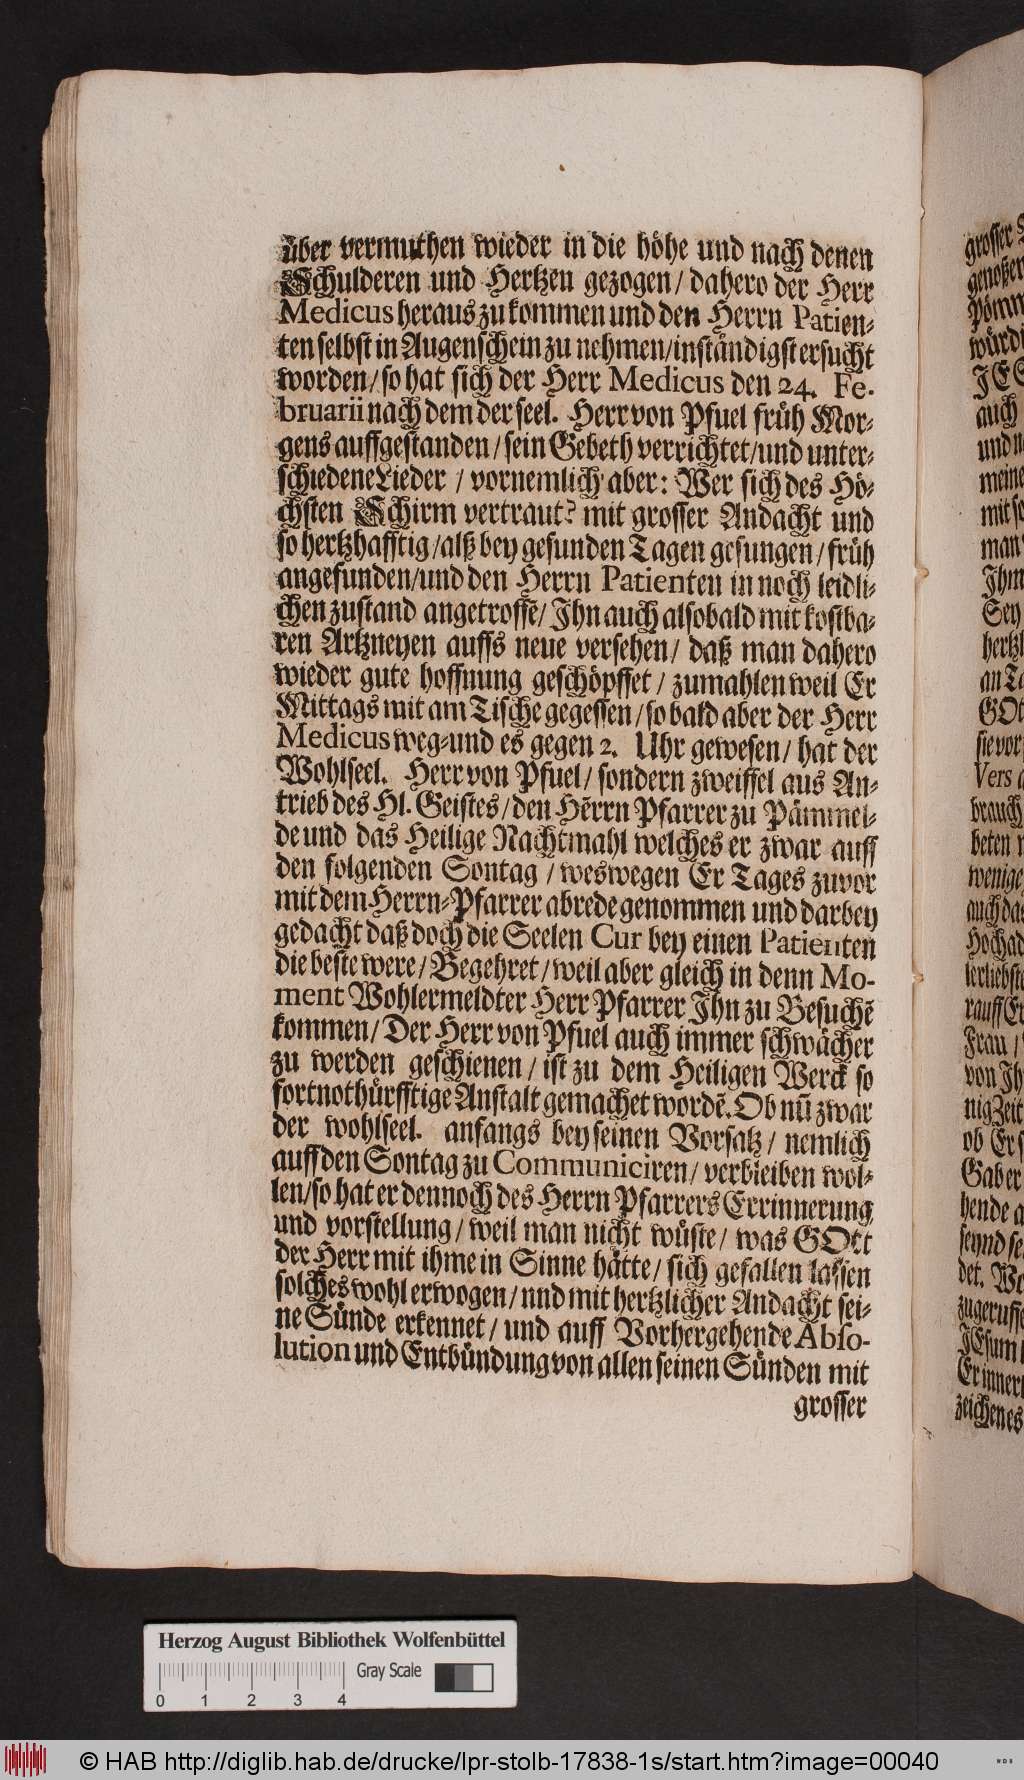 über vermuthen wieder in die höhe und nach denen
Schulderen und Hertzen gezogen / dahero der Herr
Medicus heraus zu kommen und den Herrn Patien-
ten selbst in Augenschein zu nehmen / inständigst ersucht
worden / so hat sich der Herr Medicus den 24. Fe-
bruarii nach dem der seel. Herr von Pfuel früh Mor-
gens auffgestanden / sein Gebeth verrichtet / und unter-
schiedene Lieder / vornemlich aber: Wer sich des Hö-
chsten Schirm vertraut? mit grosser Andacht und
so hertzhafftig / alß bey gesunden Tagen gesungen / früh
angefunden / und den Herrn Patienten in noch leidli-
chen zustand angetroffē / Ihn auch alsobald mit kostba-
ren Artzneyen auffs neue versehen / daß man dahero
wieder gute hoffnung geschöpffet / zumahlen weil Er
Mittags mit am Tische gegessen / so bald aber der Herr
Medicus weg-und es gegen 2. Uhr gewesen / hat der
Wohlseel. Herr von Pfuel / sondern zweiffel aus An-
trieb des Hl. Geistes / den Hērrn Pfarrer zu Pämmel-
de und das Heilige Nachtmahl welches er zwar auff
den folgenden Sontag / weswegen Er Tages zuvor
mit dem Herrn-Pfarrer abrede genommen und darbey
gedacht daß doch die Seelen Cur bey einen Patienten
die beste were / Begehret / weil aber gleich in denn Mo-
ment Wohlermeldter Herr Pfarrer Ihn zu Besuchē
kommen / Der Herr von Pfuel auch immer schwächer
zu werden geschienen / ist zu dem Heiligen Werck so
fort nothürfftige Anstalt gemachet wordē. Ob nū zwar
der wohlseel. anfangs bey seinen Vorsatz / nemlich
auff den Sontag zu Communiciren / verbleiben wol-
len / so hat er dennoch des Herrn Pfarrers Errinnerung
und vorstellung / weil man nicht wüste / was GOtt
der Herr mit ihme in Sinne hätte / sich gefallen lassen
solches wohl erwogen / nnd mit hertzlicher Andacht sei-
ne Sünde erkennet / und auff Vorhergehende Abso-
lution und Entbündung von allen seinen Sünden mit
grosser
grosser
genoßen
Pömm
würd
JES
auch
und n
meine
mit so
man
Ihm
Sey
hertzl
an Ta
GOt
sie vor
Vers
brauch
beten
wenige
auch da
Hochad
lerliebste
rauff Er
Frau /
von Ih
nig Zeit
ob Er s
Gaber
hende a
seynd se
det. We
zugeruffe
JEsum
Er innerl
zeichen es
Herzog August Bibliothek Wolfenbüttel
Gray Scale
0 1 2 3 4
© HAB http://diglib.hab.de/drucke/lpr-stolb-17838-1s/start.htm?image=00040